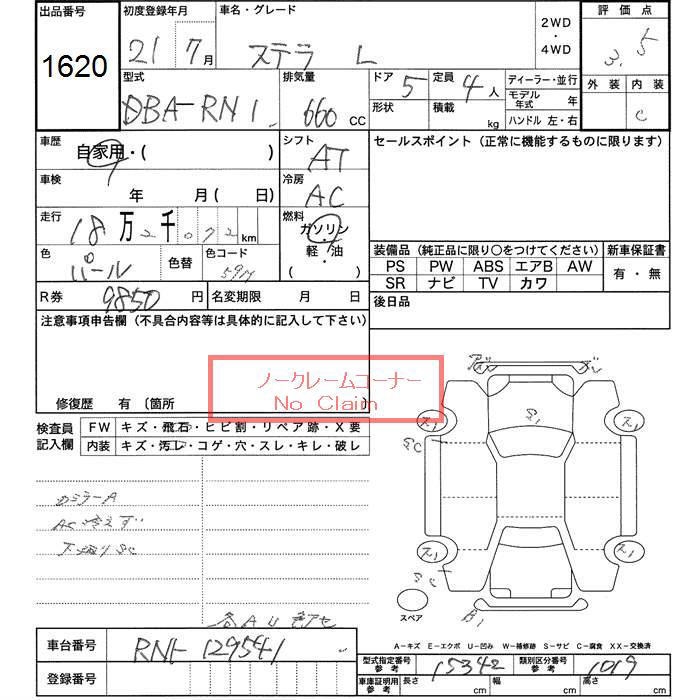 出品番号 初度登録年月 車名・グレード 2WD・4WD 評価点
1620 21 7月 ステラ L 3.5
型式 排気量 ドア 5 定員 4人 ディーラー・並行 外装 内装
DBA-RN1 660 cc 形状 積載 kg モデル年式 年 C
ハンドル 左・右
車歴 自家用・( ) シフト AT セールスポイント (正常に機能するものに限ります)
車検 年 月 ( 日) 冷房 AC
走行 18万2千072km 燃料 ガソリン・軽・油 ( )
色 パール 色替 色コード 59M
装備品 (純正品に限り○をつけてください) 新車保証書
PS PW ABS エアB AW 有・無
SR ナビ TV カワ
R券 9850円 名変期限 月 日 後日品
注意事項申告欄 (不具合内容等は具体的に記入して下さい)
ノークレームコーナー
No Claim
修復歴 有 〔箇所
検査員記入欄 FW キズ・飛石・ヒビ割・リペア跡・X要
内装 キズ・汚レ・コゲ・穴・スレ・キレ・破レ
カミラーA
AC冷えず
下廻りSC
各AU
スペア
A-キズ E-エクボ U-凹み W-補修跡 S-サビ C-腐食 XX-交換済
車台番号 RN1-129541
登録番号
型式指定番号参考 15342 類別区分番号参考 1019
車庫証明用参考 長さ cm 幅 cm 高さ cm